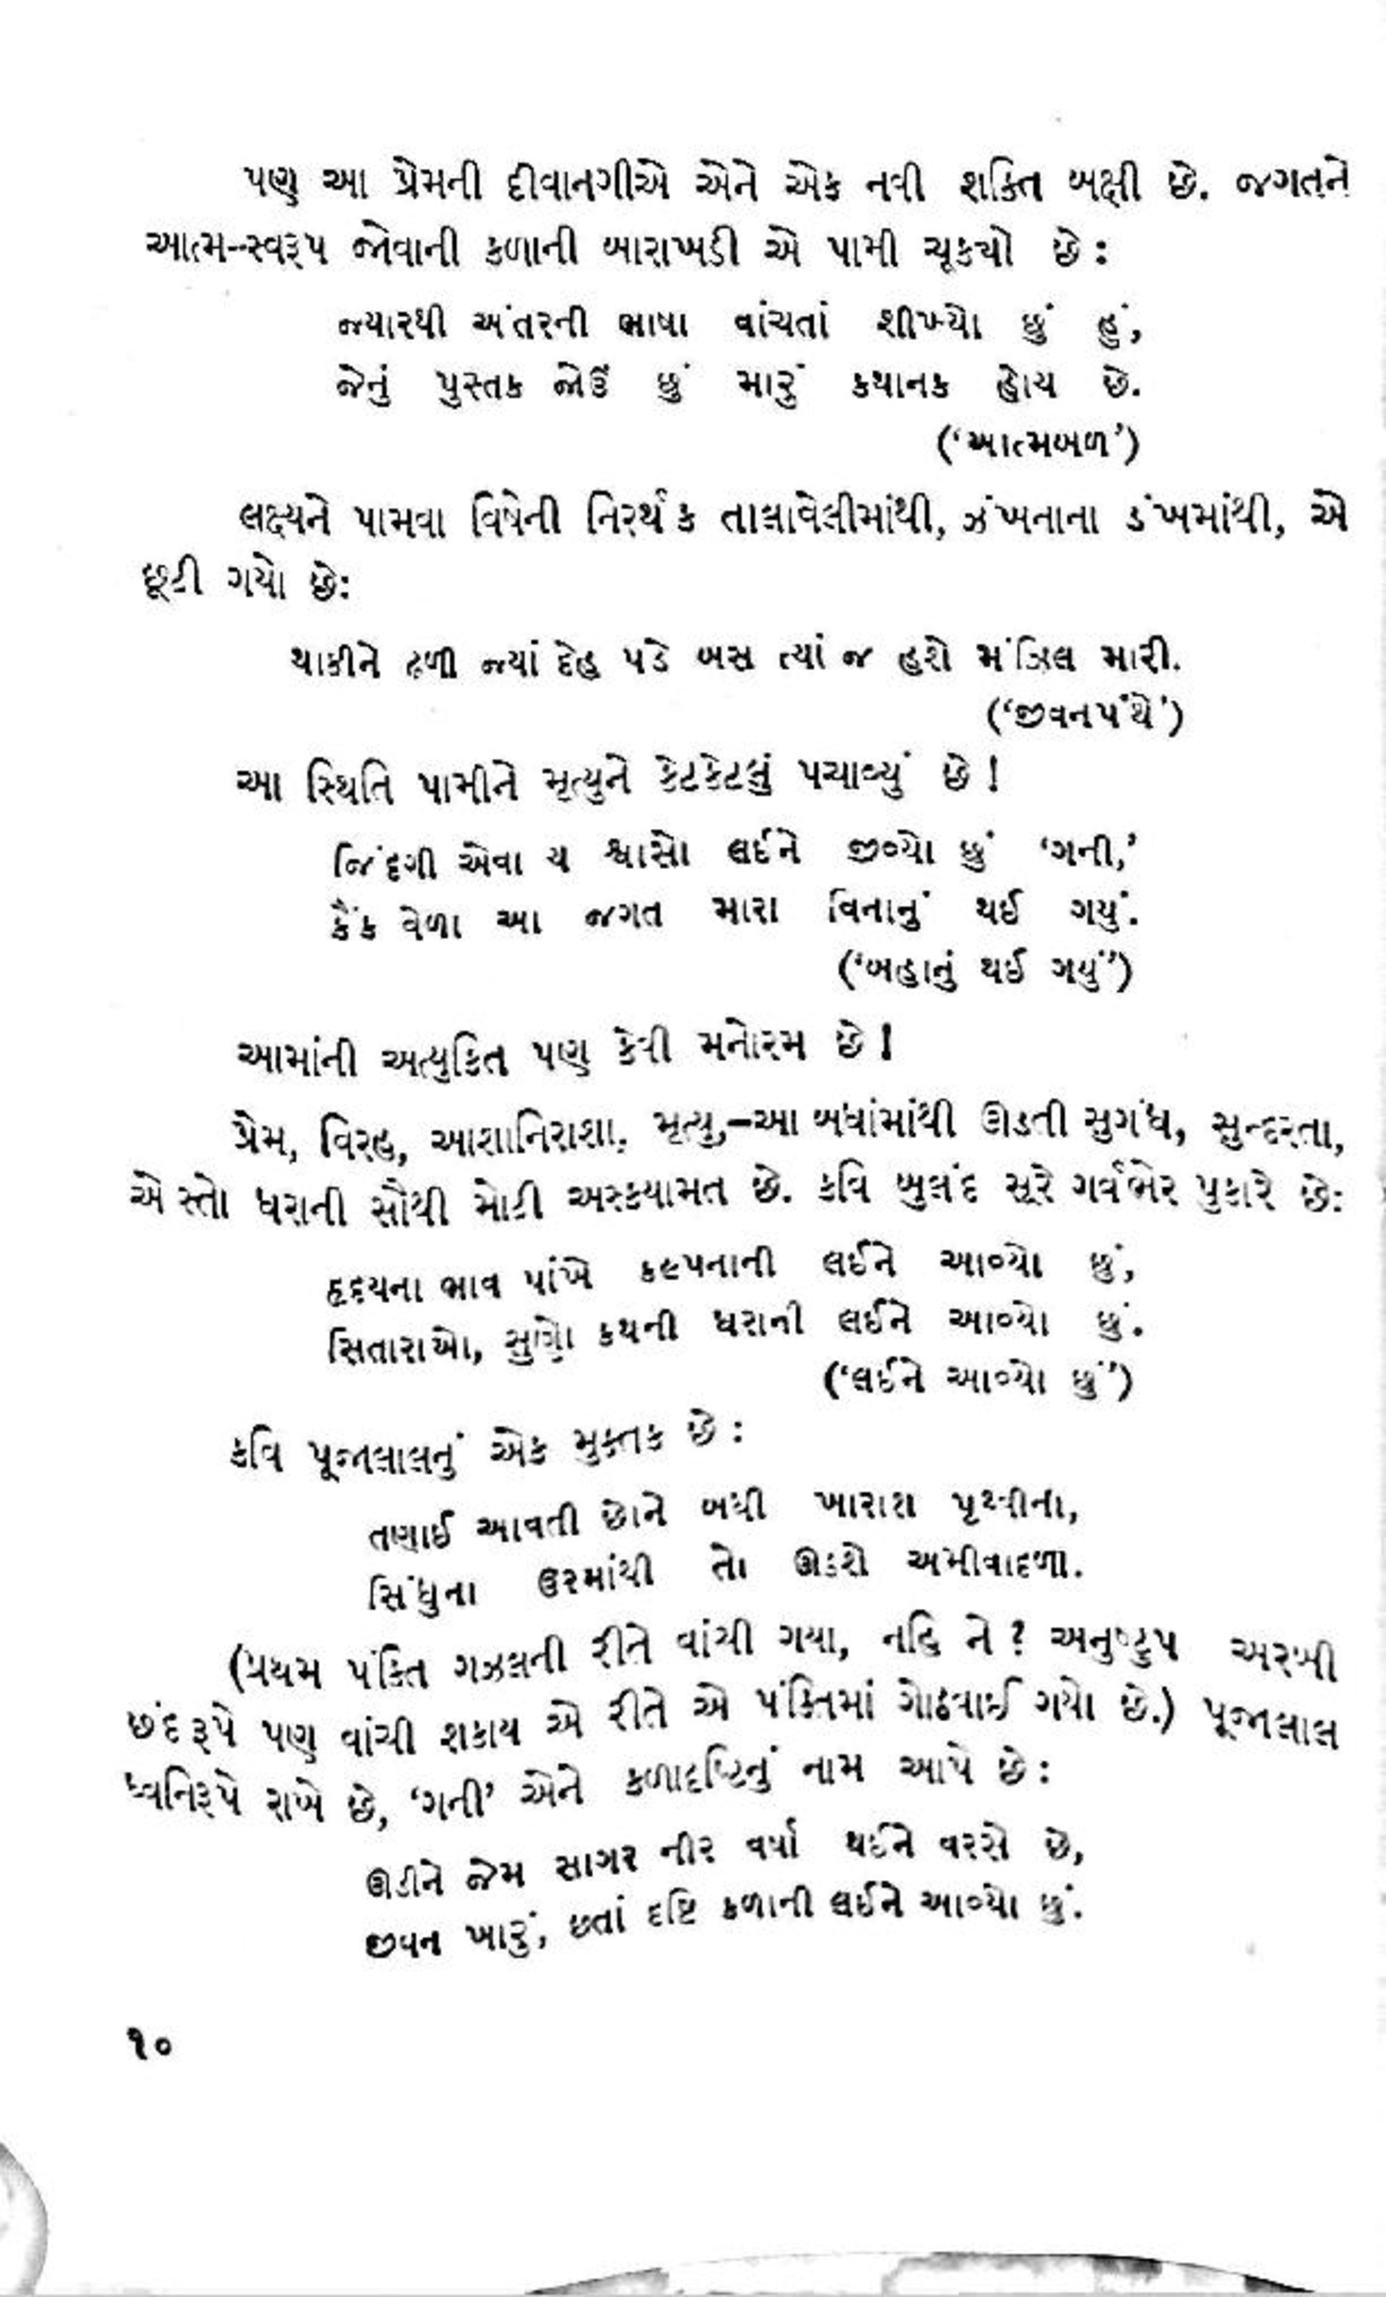 પણ આ પ્રેમની દીવાનગીએ એને એક નવી શક્તિ બક્ષી છે. જગતને
આત્મ-સ્વરૂપ જોવાની કળાની બારાખડી એ પામી ચૂકયો છે :
જ્યારથી અંતરની ભાષા વાંચતાં શીખ્યો છું હું,
જેનું પુસ્તક જોઉં છું મારું કથાનક હોય છે.
(‘આત્મબળ’)
લક્ષ્યને પામવા વિષેની નિરર્થક તાલાવેલીમાંથી, ઝંખનાના ડંખમાંથી, એ
છૂટી ગયો છે:
થાકીને ઢળી જ્યાં દેહ પડે બસ ત્યાં જ હશે મંઝિલ મારી.
(‘જીવનપંથે’)
આ સ્થિતિ પામીને મૃત્યુને કેટકેટલું પચાવ્યું છે !
જિંદગી એવા ય શ્વાસો લઈને જીવ્યો છું ‘ગની,’
કૈંક વેળા આ જગત મારા વિનાનું થઈ ગયું.
(‘બહાનું થઈ ગયું’)
આમાંની અત્યુકિત પણ કેવી મનોરમ છે !
પ્રેમ, વિરહ, આશાનિરાશા, મૃત્યુ,–આ બધાંમાંથી ઊડતી સુગંધ, સુન્દરતા,
એ સ્તો ધરાની સૌથી મોટી અસ્કયામત છે. કવિ બુલંદ સૂરે ગર્વભેર પુકારે છે:
હૃદયના ભાવ પાંખે કલ્પનાની લઈને આવ્યો છું,
સિતારાઓ, સુણો કથની ધરાની લઈને આવ્યો છું.
(‘લઈને આવ્યો છું’)
કવિ પૂજાલાલનું એક મુક્તક છે :
તણાઈ આવતી છોને બધી ખારાશ પૃથ્વીના,
સિંધુના ઉરમાંથી તો ઊડશે અમીવાદળા.
(પ્રથમ પંક્તિ ગઝલની રીતે વાંચી ગયા, નહિ ને ? અનુષ્ટુપ અરબી
છંદરૂપે પણ વાંચી શકાય એ રીતે એ પંક્તિમાં ગોઠવાઈ ગયો છે.) પૂજાલાલ
ધ્વનિરૂપે રાખે છે, ‘ગની’ એને કળાદષ્ટિનું નામ આપે છે :
ઊડીને જેમ સાગર નીર વર્ષા થઈને વરસે છે,
જીવન ખારું, છતાં દષ્ટિ કળાની લઈને આવ્યો છું.
૧૦